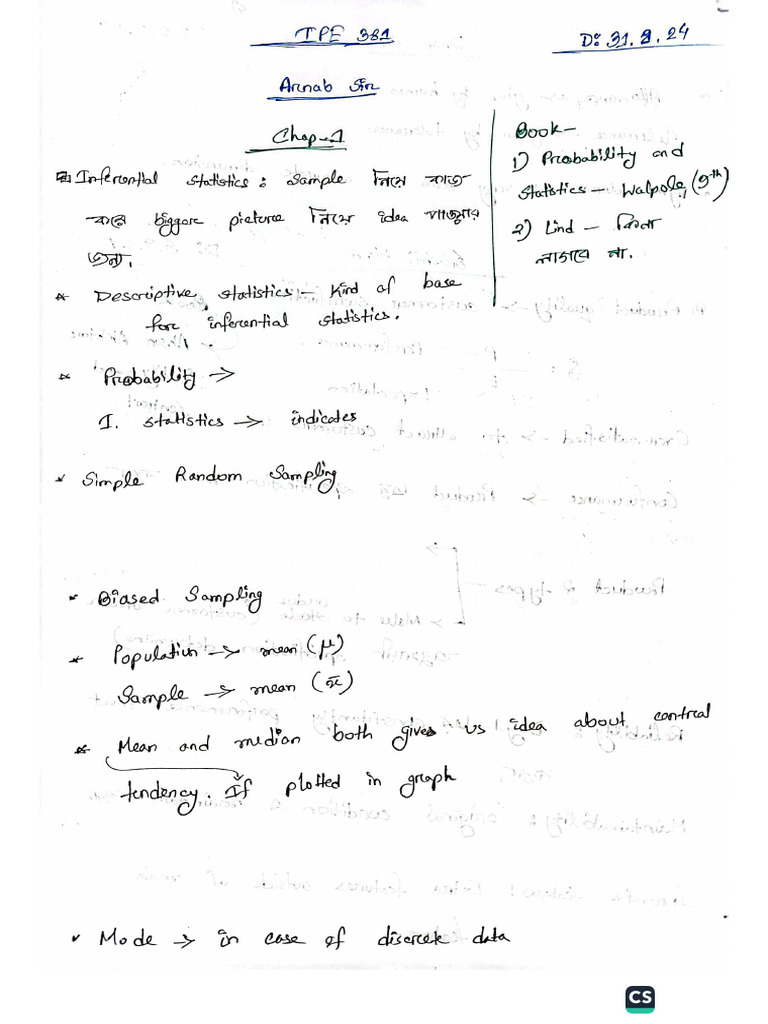 IPE 381
D: 31.8.24
Arnab Sir
Chap-1
Book-
1) Probability and
Statistics - Walpole (9th)
2) Lind - কিনা
লাগবে না.
Inferential Statistics: Sample নিয়ে কাজ
করে biggare picture নিয়ে idea পাওয়ার
জন্য.
* Descriptive statistics - Kind of base
for inferential statistics.
* Probability →
I. statistics → indicates
* Simple Random Sampling
* Biased Sampling
* Population → mean (μ)
Sample → mean (x̄)
* Mean and median both gives us idea about central
tendency. If plotted in graph
✓ Mode → in case of discrete data
CS